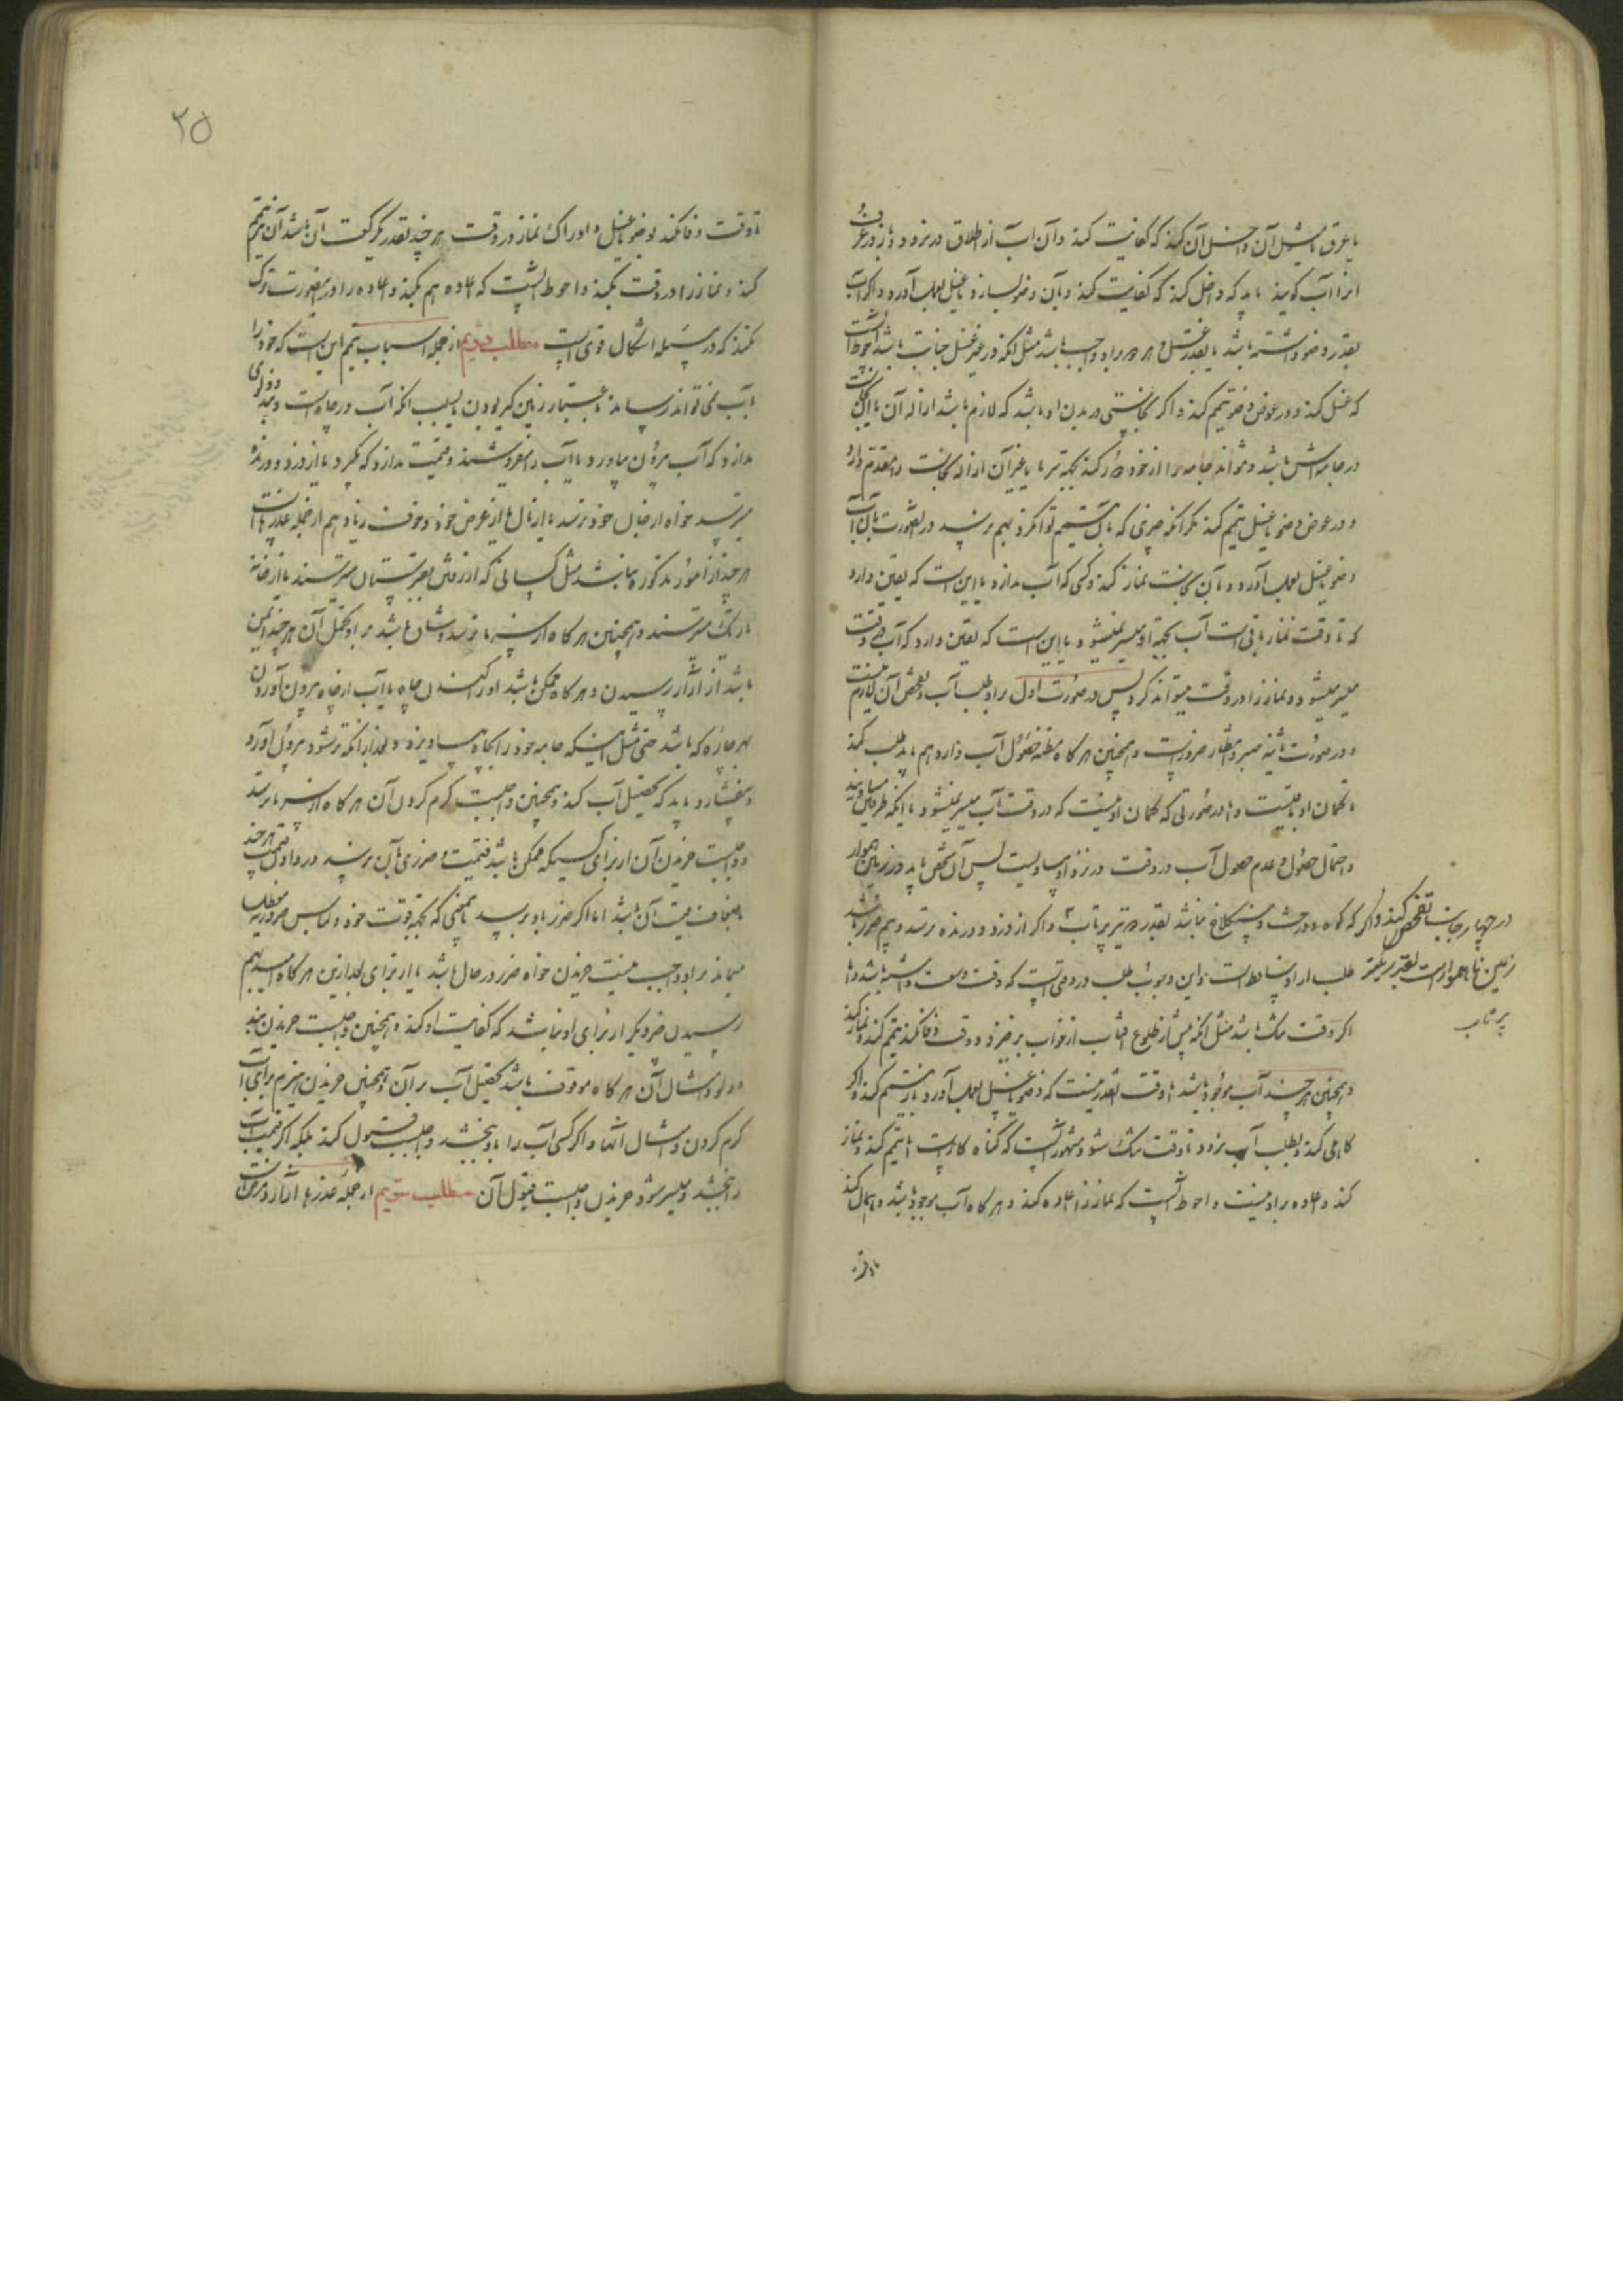 یا عرق یا مثل آن داخل آن کند که کفایت کند و آن آب از اطلاق در نرود و باز در عرف
او را آب گویند باید که داخل کند که کفایت کند و بآن وضو بسازد یا غسل بعمل آورد و اگر آب
بقدر وضو داشته باشد یا بقدر غسل و هر دو بر او واجب باشد مثل آنکه در غیر غسل جنابت باشد احوط آنست
که غسل کند و در عوض وضو تیمم کند و اگر نجاستی در بدن او باشد که لازم باشد ازاله آن یا
در جامه‌اش باشد و نتواند جامه را از خود دور کند بجهة سرما یا غیر آن ازاله نجاست را مقدم دارد
و در عوض وضو یا غسل تیمم کند مگر آنکه چیزی که بآن تیمم توان کرد بهم نرسد در اینصورت بآن آب
وضو یا غسل بعمل آورد و با آن نجاست نماز کند و کسی که آب ندارد یا این است که یقین دارد
که تا وقت نماز باقی است آب بجهة او میسر نمیشود یا این است که یقین دارد که آب در وقت
میسر میشود و نماز را در وقت میتواند کرد پس در صورت اول بر او طلب آب و تفحص آن لازم نیست
و در صورت ثانیه صبر و انتظار ضرور است و همچنین هر گاه مظنه حصول آب دارد هم باید طلب کند
تا گمان او باقیست و اما در صورتی که گمان او نیست که در وقت آب میسر نمیشود یا آنکه طرفین مساویند
و احتمال حصول و عدم حصول آب در وقت در نزد او مساویست پس آن شخص باید در زمین هموار
در چهار جانب تفحص کند و اگر که کوه و درخت و سنگلاخ نباشد بقدر دو تیر پرتاب و اگر از دزد و درنده نترسد و هم ضرر نباشد
زمین ناهموار است بقدر یک تیر طلب از او ساقط است و این وجوب طلب در وقتی است که وقت وسعت داشته باشد و اما
پرتاب
اگر وقت تنگ باشد مثل آنکه پیش از طلوع آفتاب از خواب برخیزد و وقت وفا نکند تیمم کند و نماز کند
و همچنین هر چند آب موجود باشد اما وقت آنقدر نیست که وضو یا غسل بعمل آورد باز تیمم کند و اگر
کاهلی کند و بطلب آب نرود تا وقت تنگ شود مشهور آنست که گناه کار است اما تیمم کند و نماز
کند و اعاده بر او نیست و احوط آنست که نماز را اعاده کند و هر گاه آب موجود باشد و اهمال کند
تا وقت
۲۵
تا وقت وفا نکند بوضو یا غسل و ادراک نماز در وقت هر چند بقدر یکرکعت آن باشد آن نیز تیمم
کند و نماز را در وقت بکند و احوط آنست که اعاده هم بکند و اعاده را در اینصورت ترک
نکند که در مسئله اشکال قوی است مطلب دویم از جمله اسباب تیمم این است که خود را
بآب نمی‌تواند رساند باعتبار زمین گیر بودن یا بسبب آنکه آب در چاه است و دلوی
ندارد که آب بیرون بیاورد یا آب را میفروشند و قیمت ندارد که بگیرد یا از دزد و درنده
میترسد خواه از جان خود ترسد یا از مال یا از عرض خود و خوف زیاد هم از جمله عذرهاست
هر چند از امور مذکوره نباشد مثل کسانی که از رفتن بقبرستان میترسند یا از خانه
تاریک میترسند و همچنین هر گاه از سرما ترسد و شاق باشد بر او تحمل آن هر چند ایمن
باشد از آزار رسیدن و هر گاه ممکن باشد او را کندن چاه یا آب از چاه بیرون آوردن
بهر چاره که باشد حتی مثل اینکه جامه خود را بچاه بیاویزد و بعد از آنکه تر شود بیرون آورد
و بفشارد باید که تحصیل آب کند و همچنین واجبست گرم کردن آن هر گاه از سرما ترسد
و واجبست خریدن آن از برای کسیکه ممکن باشد قیمت و ضرری بآن نرسد در دادن قیمت هر چند
باضعاف قیمت آن باشد اما اگر ضرر باو برسد بمعنی که بجهة قوت خود و لباس ضروریه معطل
میماند بر او واجب نیست خریدن خواه ضرر در حال باشد یا از برای بعد از این هر گاه امید بهم
رسیدن ضرر دیگر از برای او نباشد که کفایت او کند و همچنین واجبست خریدن بند
و دلو و امثال آن هر گاه موقوف باشد تحصیل آب بر آن و همچنین خریدن هیزم برای آب
گرم کردن و امثال آنها و اگر کسی آب را باو بخشد واجبست قبول کند بلکه اگر قیمت آب
را بخشد و میسر شود خریدن واجبست قبول آن مطلب سویم از جمله عذرها آزار و مرضست